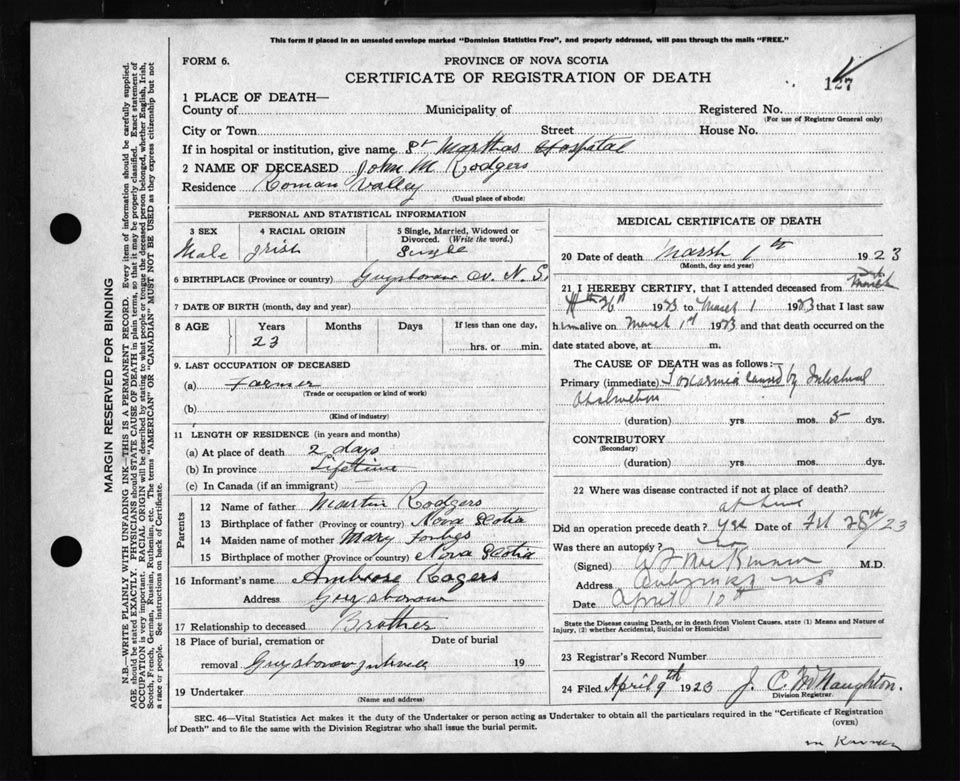 This form if placed in an unsealed envelope marked "Dominion Statistics Free", and properly addressed, will pass through the mails "FREE."
FORM 6.
PROVINCE OF NOVA SCOTIA
CERTIFICATE OF REGISTRATION OF DEATH
127
1 PLACE OF DEATH—
County of Municipality of Registered No.
(For use of Registrar General only)
City or Town Street House No.
If in hospital or institution, give name St Marthas Hospital
2 NAME OF DECEASED John M Rodgers
Residence Roman Valley
(Usual place of abode)
PERSONAL AND STATISTICAL INFORMATION
3 SEX 4 RACIAL ORIGIN 5 Single, Married, Widowed or Divorced. (Write the word.)
Male Irish Single
6 BIRTHPLACE (Province or country) Guysboro Co. N. S.
7 DATE OF BIRTH (month, day and year)
8 AGE Years Months Days If less than one day,
23 hrs. or min.
9. LAST OCCUPATION OF DECEASED
(a) Farmer
(Trade or occupation or kind of work)
(b)
(Kind of industry)
11 LENGTH OF RESIDENCE (in years and months)
(a) At place of death 2 days
(b) In province Lifetime
(c) In Canada (if an immigrant)
Parents
12 Name of father Martin Rodgers
13 Birthplace of father (Province or country) Nova Scotia
14 Maiden name of mother Mary Forbes
15 Birthplace of mother (Province or country) Nova Scotia
16 Informant's name Ambrose Rogers
Address Guysboro
17 Relationship to deceased Brother
18 Place of burial, cremation or Date of burial
removal Guysboro 19
19 Undertaker
(Name and address)
MEDICAL CERTIFICATE OF DEATH
20 Date of death March 1st 1923
(Month, day and year)
21 I HEREBY CERTIFY, that I attended deceased from
26th 1923 to March 1 1923 that I last saw
him alive on March 1st 1923 and that death occurred on the
date stated above, at m.
The CAUSE OF DEATH was as follows:
Primary (immediate) Toxaemia caused by Intestinal
Obstruction
(duration) yrs. mos. 5 dys.
CONTRIBUTORY
(Secondary)
(duration) yrs. mos. dys.
22 Where was disease contracted if not at place of death?
at home
Did an operation precede death? yes Date of Feb 28th/23
Was there an autopsy? no
(Signed) M.D.
Address Antigonish NS
Date April 10th
State the Disease causing Death, or in death from Violent Causes, state (1) Means and Nature of
Injury, (2) whether Accidental, Suicidal or Homicidal
23 Registrar's Record Number
24 Filed April 9th 1923 J. C. McNaughton.
Division Registrar.
SEC. 46—Vital Statistics Act makes it the duty of the Undertaker or person acting as Undertaker to obtain all the particulars required in the "Certificate of Registration
of Death" and to file the same with the Division Registrar who shall issue the burial permit.
(OVER)
MARGIN RESERVED FOR BINDING
N.B.—WRITE PLAINLY WITH UNFADING INK—THIS IS A PERMANENT RECORD. Every item of information should be carefully supplied.
AGE should be stated EXACTLY. PHYSICIANS should STATE CAUSE OF DEATH in plain terms, so that it may be properly classified. Exact statement of
OCCUPATION is very important. RACIAL ORIGIN will be described by stating to what people or tongue the deceased person belonged, whether English, Irish,
Scotch, French, German, Russian, Ruthenian, etc. The terms "AMERICAN" OR "CANADIAN" MUST NOT BE USED as they express citizenship but not
a race or people. See instructions on back of Certificate.